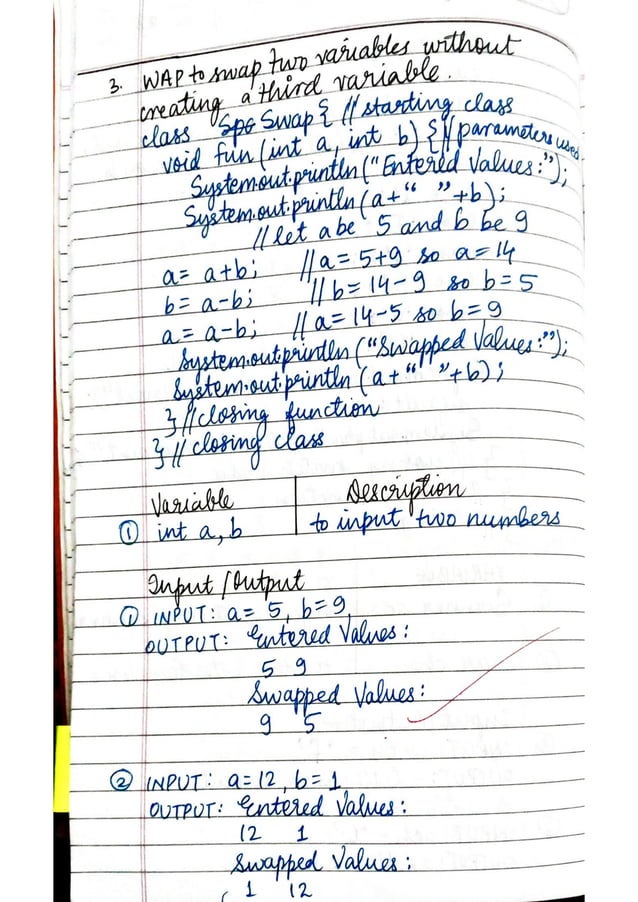 3. WAP to swap two variables without
creating a third variable.
class Swap { // starting class
void fun (int a, int b) { // parameters used
System.out.println ("Entered Values:");
System.out.println (a+" "+b);
// let a be 5 and b be 9
a= a+b; // a= 5+9 so a= 14
b= a-b; // b= 14-9 so b= 5
a= a-b; // a= 14-5 so b= 9
System.out.println ("Swapped Values:");
System.out.println (a+" "+b);
} // closing function
} // closing class
Variable Description
① int a, b to input two numbers
Input / Output
① INPUT: a= 5, b= 9
OUTPUT: Entered Values:
5 9
Swapped Values:
9 5
② INPUT: a= 12, b= 1
OUTPUT: Entered Values:
12 1
Swapped Values:
1 12